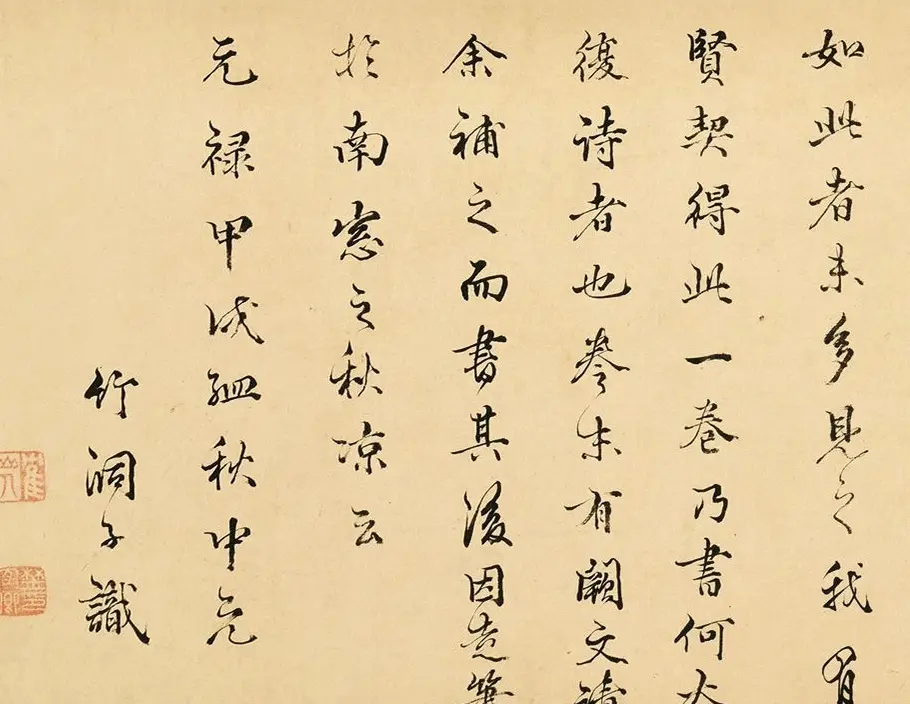 如此者未多見之我有
賢契得此一巻乃書何大
復詩者也巻末有闕文請
余補之而書其後因走筆
於南窓之秋涼云
元禄甲戌孟秋中元
竹洞子識